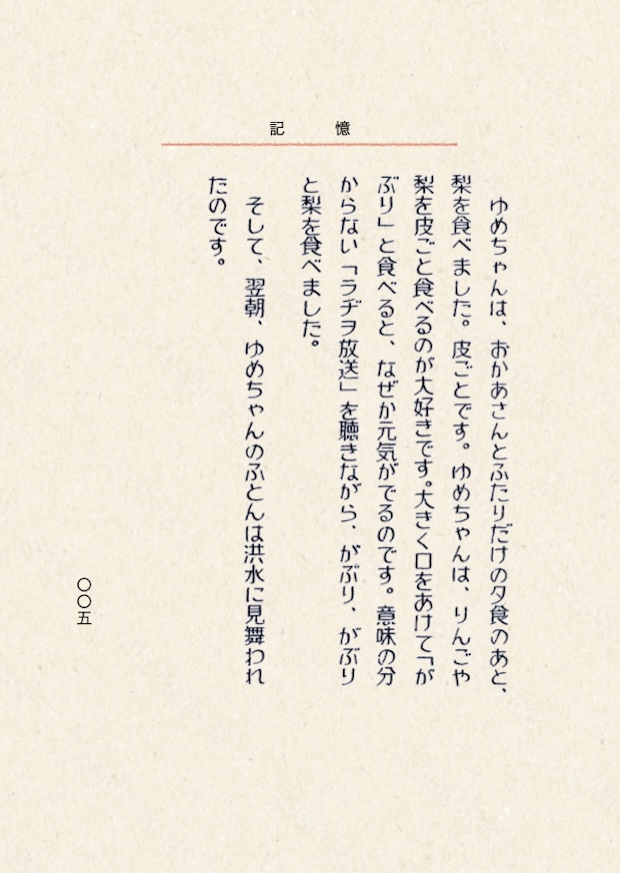 記憶
ゆめちゃんは、おかあさんとふたりだけの夕食のあと、
梨を食べました。皮ごとです。ゆめちゃんは、りんごや
梨を皮ごと食べるのが大好きです。大きく口をあけて「が
ぶり」と食べると、なぜか元気がでるのです。意味の分
からない「ラヂヲ放送」を聴きながら、がぶり、がぶり
と梨を食べました。
そして、翌朝、ゆめちゃんのふとんは洪水に見舞われ
たのです。
〇〇五